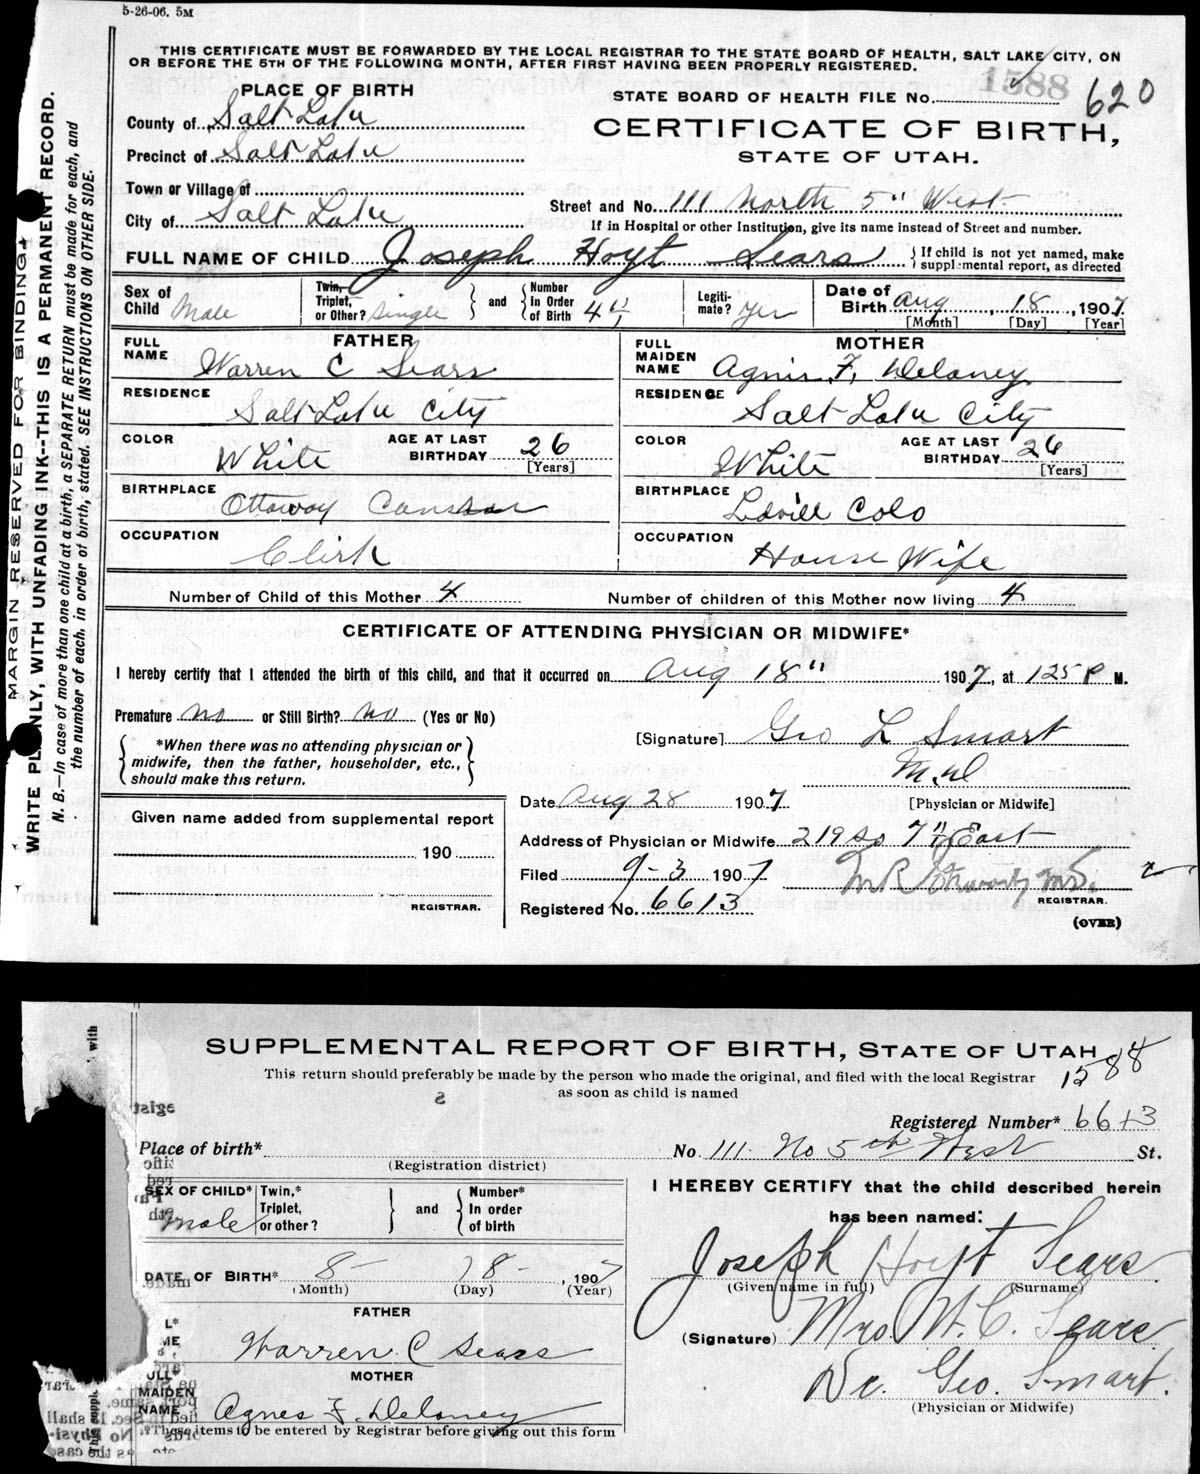 5-26-06. 5M
THIS CERTIFICATE MUST BE FORWARDED BY THE LOCAL REGISTRAR TO THE STATE BOARD OF HEALTH, SALT LAKE CITY, ON
OR BEFORE THE 5TH OF THE FOLLOWING MONTH, AFTER FIRST HAVING BEEN PROPERLY REGISTERED.
MARGIN RESERVED FOR BINDING
WRITE PLAINLY, WITH UNFADING INK--THIS IS A PERMANENT RECORD.
N. B.—In case of more than one child at a birth, a SEPARATE RETURN must be made for each, and
the number of each, in order of birth, stated. SEE INSTRUCTIONS ON OTHER SIDE.
PLACE OF BIRTH
County of Salt Lake
Precinct of Salt Lake
Town or Village of
City of Salt Lake
STATE BOARD OF HEALTH FILE No. 1588 620
CERTIFICATE OF BIRTH,
STATE OF UTAH.
Street and No. 111 North 5" West
If in Hospital or other Institution, give its name instead of Street and number.
FULL NAME OF CHILD Joseph Hoyt Sears { If child is not yet named, make supplemental report, as directed
Sex of Child Male Twin, Triplet, or Other? Single and Number in Order of Birth 4" Legitimate? Yes Date of Birth Aug, 18, 1907 [Month] [Day] [Year]
FATHER
FULL NAME Warren C Sears
RESIDENCE Salt Lake City
COLOR White AGE AT LAST BIRTHDAY 26 [Years]
BIRTHPLACE Ottoway
OCCUPATION Clerk
MOTHER
FULL MAIDEN NAME Agnis F. Delaney
RESIDENCE Salt Lake City
COLOR White AGE AT LAST BIRTHDAY 26 [Years]
BIRTHPLACE Colo
OCCUPATION House Wife
Number of Child of this Mother 4 Number of children of this Mother now living 4
CERTIFICATE OF ATTENDING PHYSICIAN OR MIDWIFE*
I hereby certify that I attended the birth of this child, and that it occurred on Aug 18" 1907, at 125 P M.
Premature no or Still Birth? no (Yes or No)
{ *When there was no attending physician or
midwife, then the father, householder, etc.,
should make this return. }
[Signature] Geo L Smart
M.D
[Physician or Midwife]
Date Aug 28 1907
Address of Physician or Midwife 219 So 7" East
Filed 9-3 1907
REGISTRAR.
Registered No. 6613
(OVER)
Given name added from supplemental report
190
REGISTRAR.
SUPPLEMENTAL REPORT OF BIRTH, STATE OF UTAH
1588
This return should preferably be made by the person who made the original, and filed with the local Registrar
as soon as child is named
Registered Number* 6613
Place of birth* No 111. No 5th West St.
(Registration district)
SEX OF CHILD* Male Twin,* Triplet, or other? and Number* In order of birth
DATE OF BIRTH* 8- 18-, 1907
(Month) (Day) (Year)
FATHER
Warren C Sears
MOTHER
MAIDEN NAME Agnes F. Delaney
*These items to be entered by Registrar before giving out this form
I HEREBY CERTIFY that the child described herein
has been named:
Joseph Hoyt Sears
(Given name in full) (Surname)
(Signature) Mrs W. C. Sears
Dr. Geo. Smart.
(Physician or Midwife)